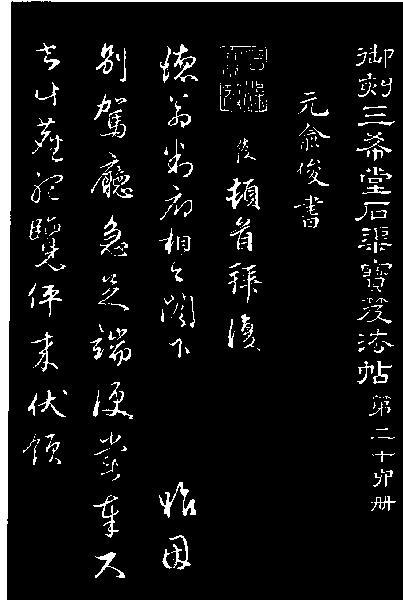 御刻三希堂石渠寶笈法帖第二十卯册
元俞俊書
俊頓首拜復
德翁判府相公閣下 昨因
別駕廳急足端便嘗奉尺
覽伻來伏領